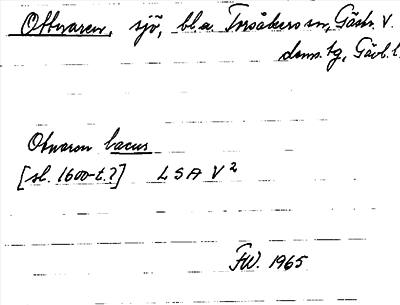 Ottnaren, sjö, bl.a. Torsåkers sn, Gästr. V.
doms.tg, Gävl. l.
Otnaren lacus
[sl. 1600-t.?] LSA V²
FW. 1965